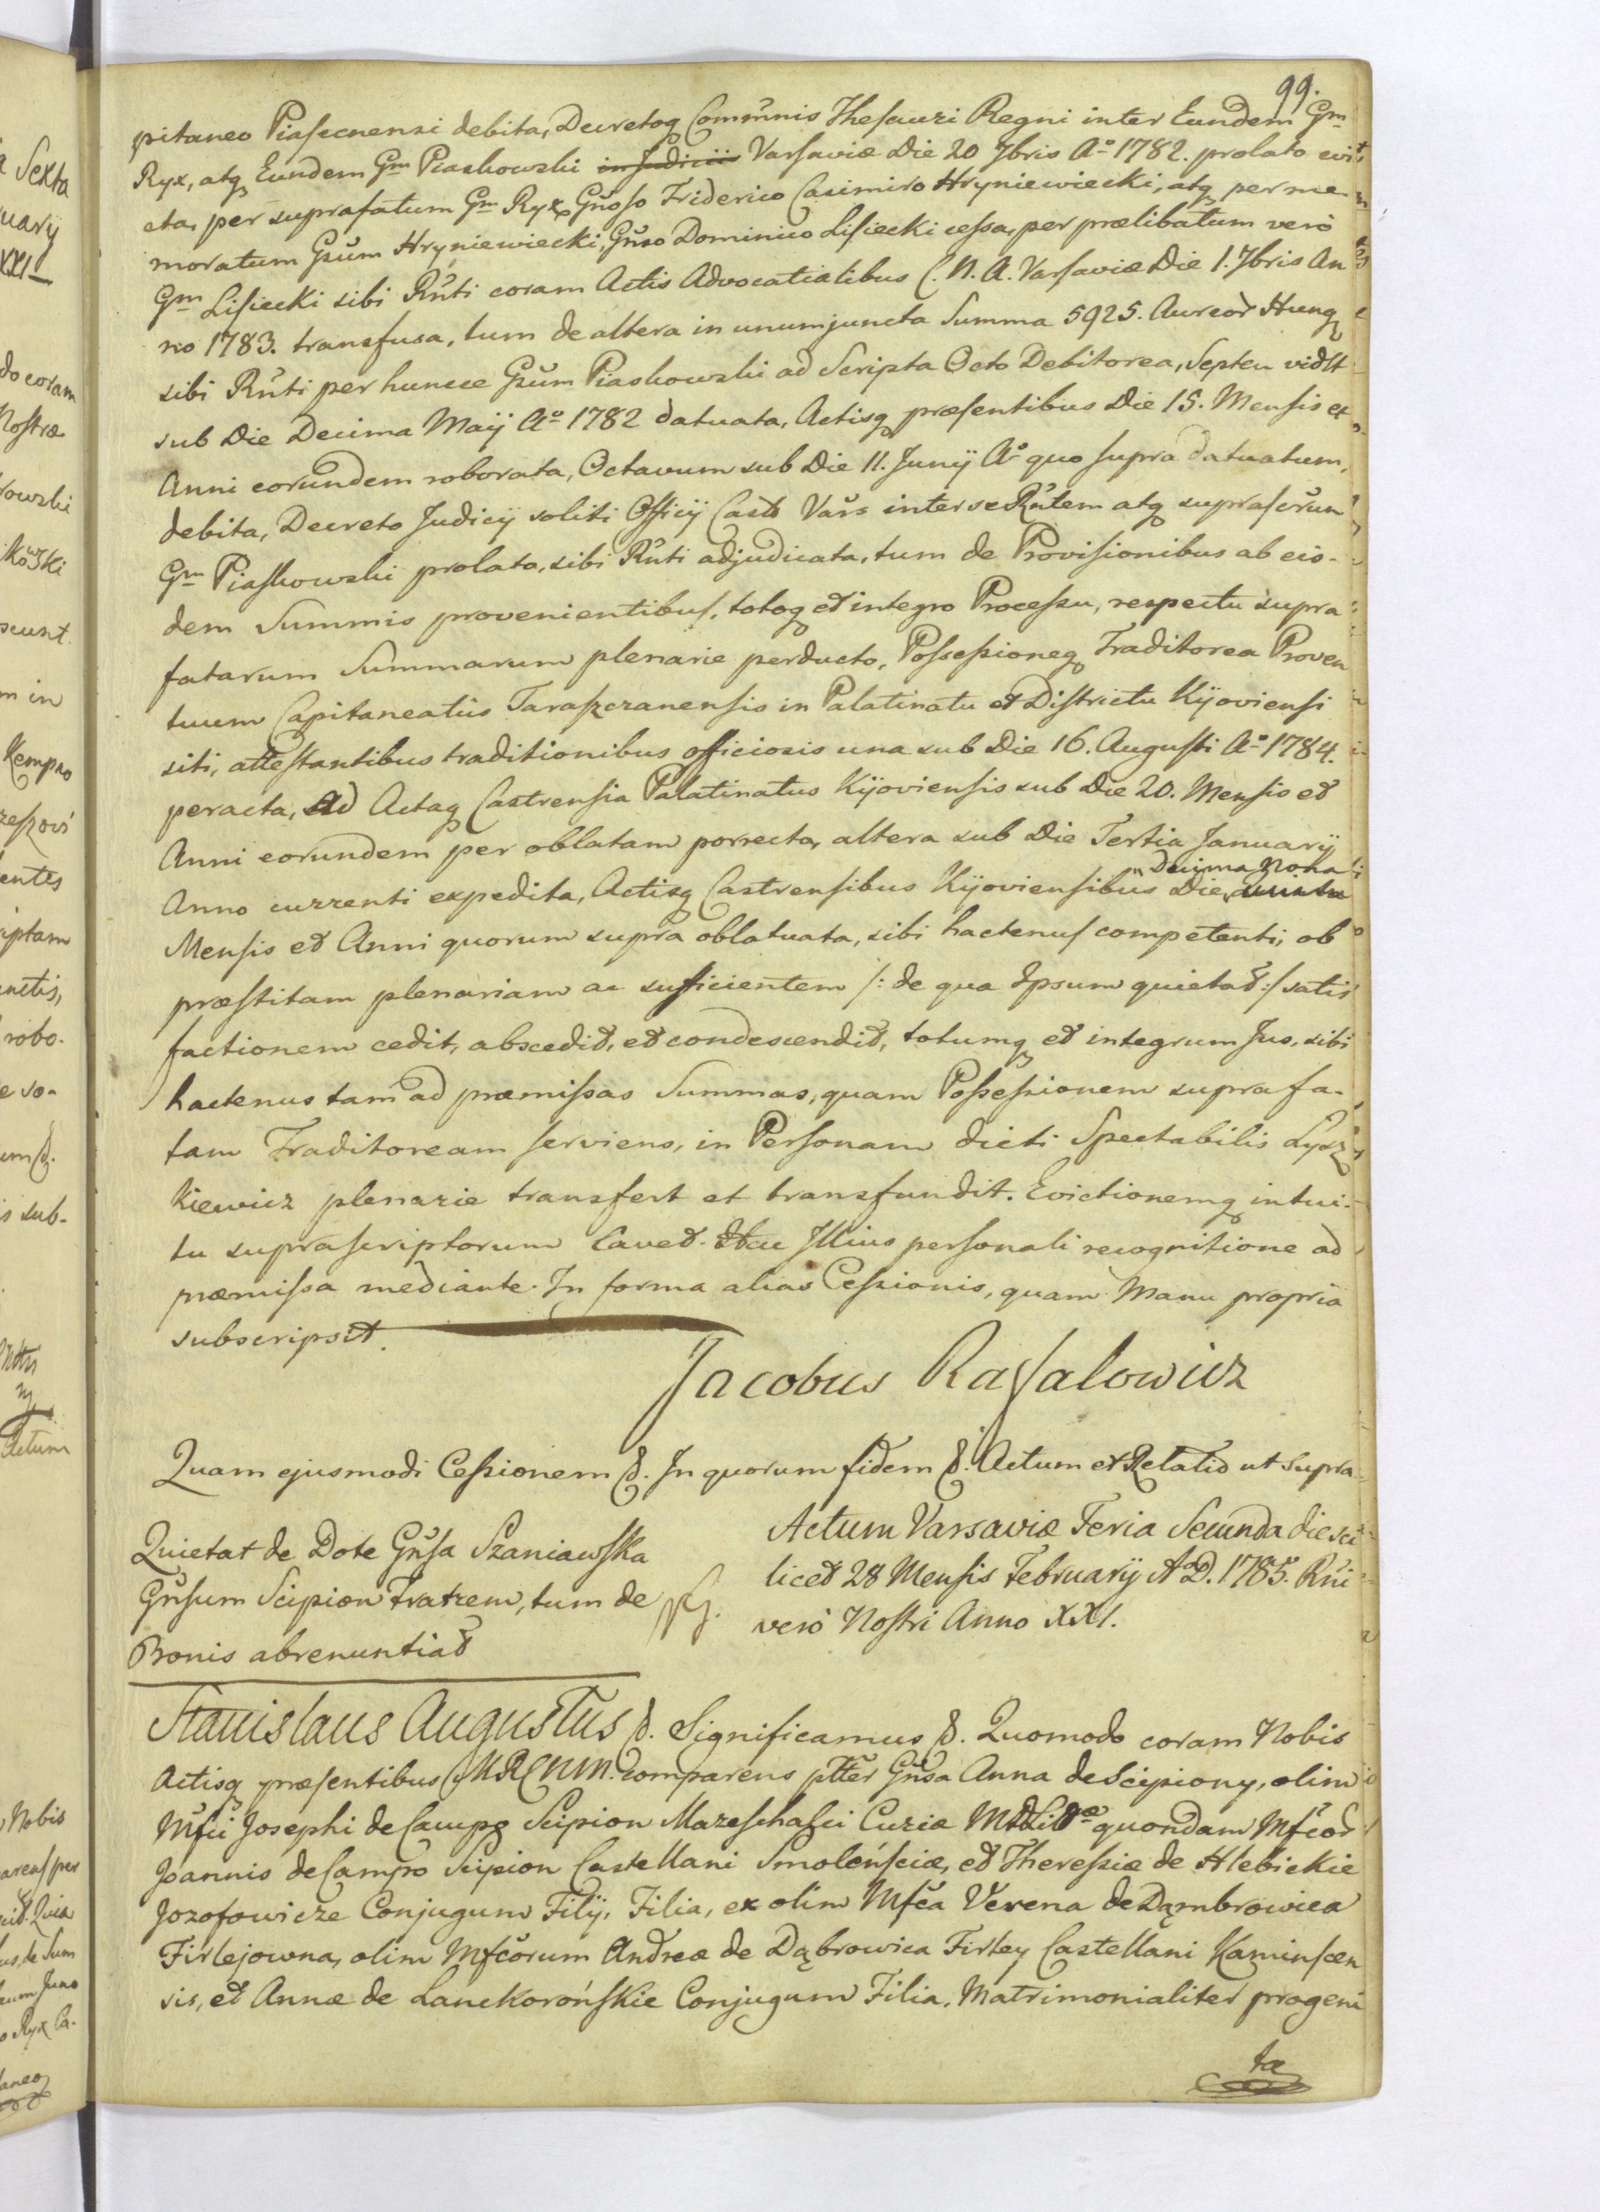 99.
pitaneo Piasecnensi debita, Decretoq Communis Thesauri Regni inter Eundem Gm
Ryx, atq Eundem Gm Piaskowski in Judiciis Varsaviæ Die 20 7bris Ao 1782. prolato evi
cta, per suprafatum Gm Ryx, Gnoso Friderico Casimiro Hryniewiecki, atq per me
moratum Gsum Hryniewiecki, Gnso Dominico Lisiecki cessa, per prælibatum verò
Gm Lisiecki sibi Rnti coram Actis Advocatialibus C. N. A. Varsaviæ Die 1. 7bris An
no 1783. transfusa, tum de altera in unum juncta Summa 5925. Aureor Hung
sibi Rnti per hunce Gsum Piaskowski ad Scripta Octo Debitorea, Septem vidlt
sub Die Decima Maij Ao 1782 datuata, Actisq præsentibus Die 15. Mensis et
Anni eorundem roborata, Octavum sub Die 11. Junij Ao quo supra datuatum,
debita, Decreto Judicij soliti Officij Casts Vars inter se Rntem atq suprascrun
Gm Piaskowski prolato, sibi Rnti adjudicata, tum de Provisionibus ab eis-
dem Summis provenientibus, totoq et integro Processu, respectu supra
fatarum Summarum plenarie perducto, Possessioneq Traditorea Proven
tuum Capitaneatûs Taraszczanensis in Palatinatu et Districtu Kijoviensi
siti, attestantibus traditionibus officiosis una sub Die 16. Augusti Ao 1784.
peracta, Ad Actaq Castrensia Palatinatus Kijoviensis sub Die 20. Mensis et
Anni eorundem per oblatam porrecta, altera sub Die Tertia Januarij
Anno currenti expedita, Actisq Castrensibus Kijoviensibus Die Decima Nona
Mensis et Anni quorum supra oblatuata, sibi hactenus competenti, ob
præstitam plenariam ac sufficientem /: de qua Ipsum quietat :/ satis
factionem cedit, abscedit, et condescendit, totumq et integrum Jus, sibi
hactenus tam ad præmissas Summas, quam Possessionem suprafa-
tam Traditoream serviens, in Personam dicti Spectabilis Lysz
kiewicz plenarie transfert et transfundit. Evictionemq intui-
tu suprascriptorum Cavet. Hac Illius personali recognitione ad
præmissa mediante. In forma alias Cessionis, quam Manu propria
subscripsit.
Jacobus Rafalowicz
Quam ejusmodi Cessionem &. In quorum fidem &. Actum et Relatio ut supra
Quietat de Dote Gnsa Szaniawska
Gnsum Scipion Fratrem, tum de
Bonis abrenuntiat
Actum Varsaviæ Feria Secunda die sci
licet 28 Mensis Februarij A D. 1785. Rni
verò Nostri Anno XXI.
Stanislaus Augustus &. Significamus &. Quomodo coram Nobis
Actisq præsentibus comparens ptter Gnsa Anna de Scipiony, olim
Mfci Josephi de Campo Scipion Mareschalci Curiæ quondam Mfcor
Joannis de Campo Scipion Castellani Smolensciæ, et Theressiæ de Hlebickie
Jozofowicze Conjugum Filij, Filia, ex olim Mfca Verena de Dąmbrowica
Firlejowna, olim Mfcorum Andreæ de Dąbrowica Firley Castellani Kaminscen
sis, et Annæ de Lanckorońskie Conjugum Filia, Matrimonialiter progeni
ta